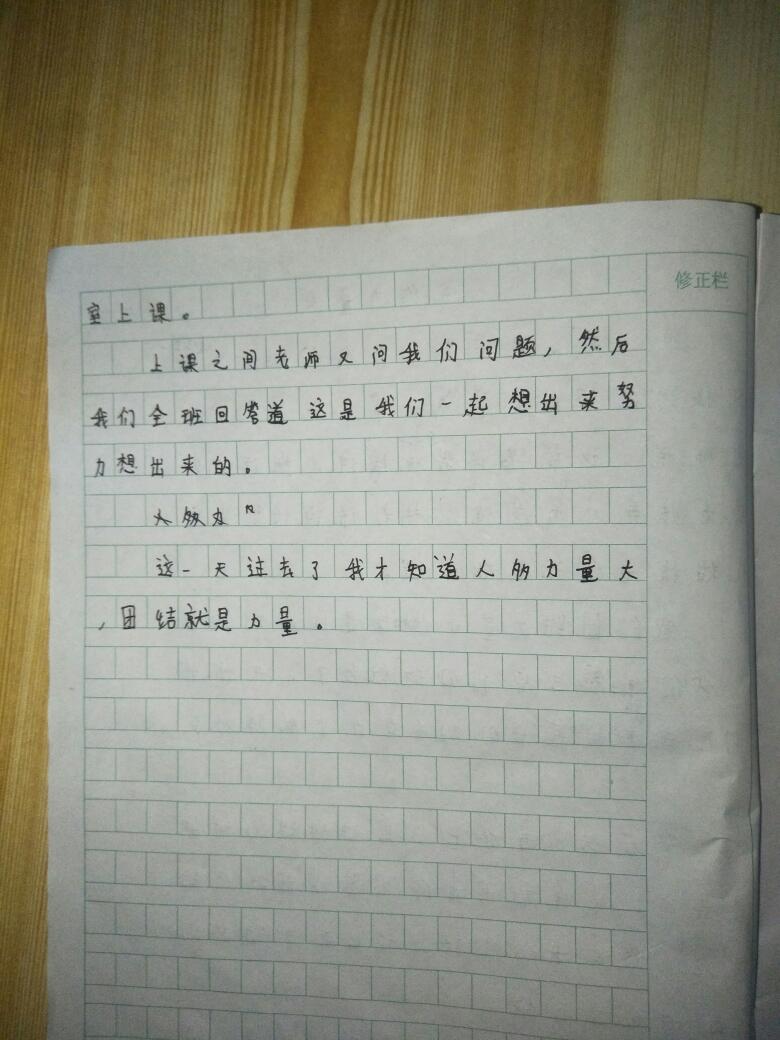 修正栏
室上课。
上课之间老师又问我们问题，然后
我们全班回答道这是我们一起想出来努
力想出来的。
人多力
这一天过去了我才知道人多力量大
，团结就是力量。